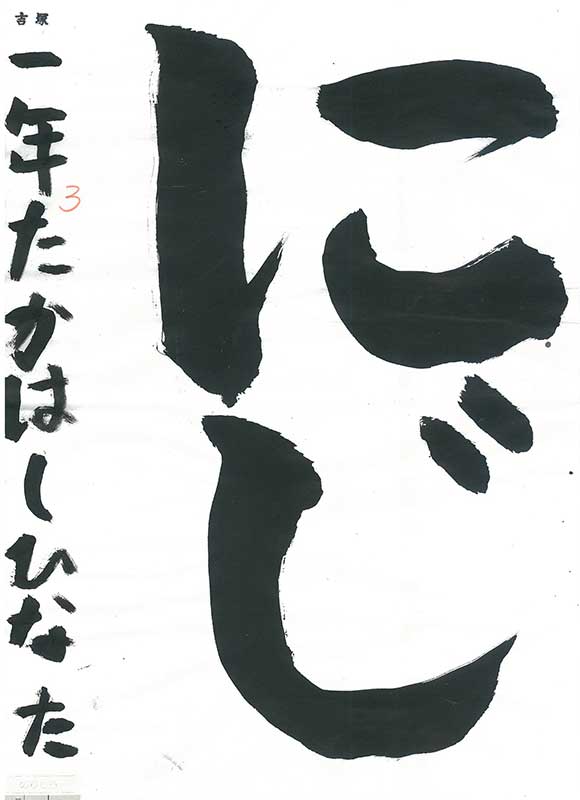 にじ
吉塚
一年たかはしひなた
3